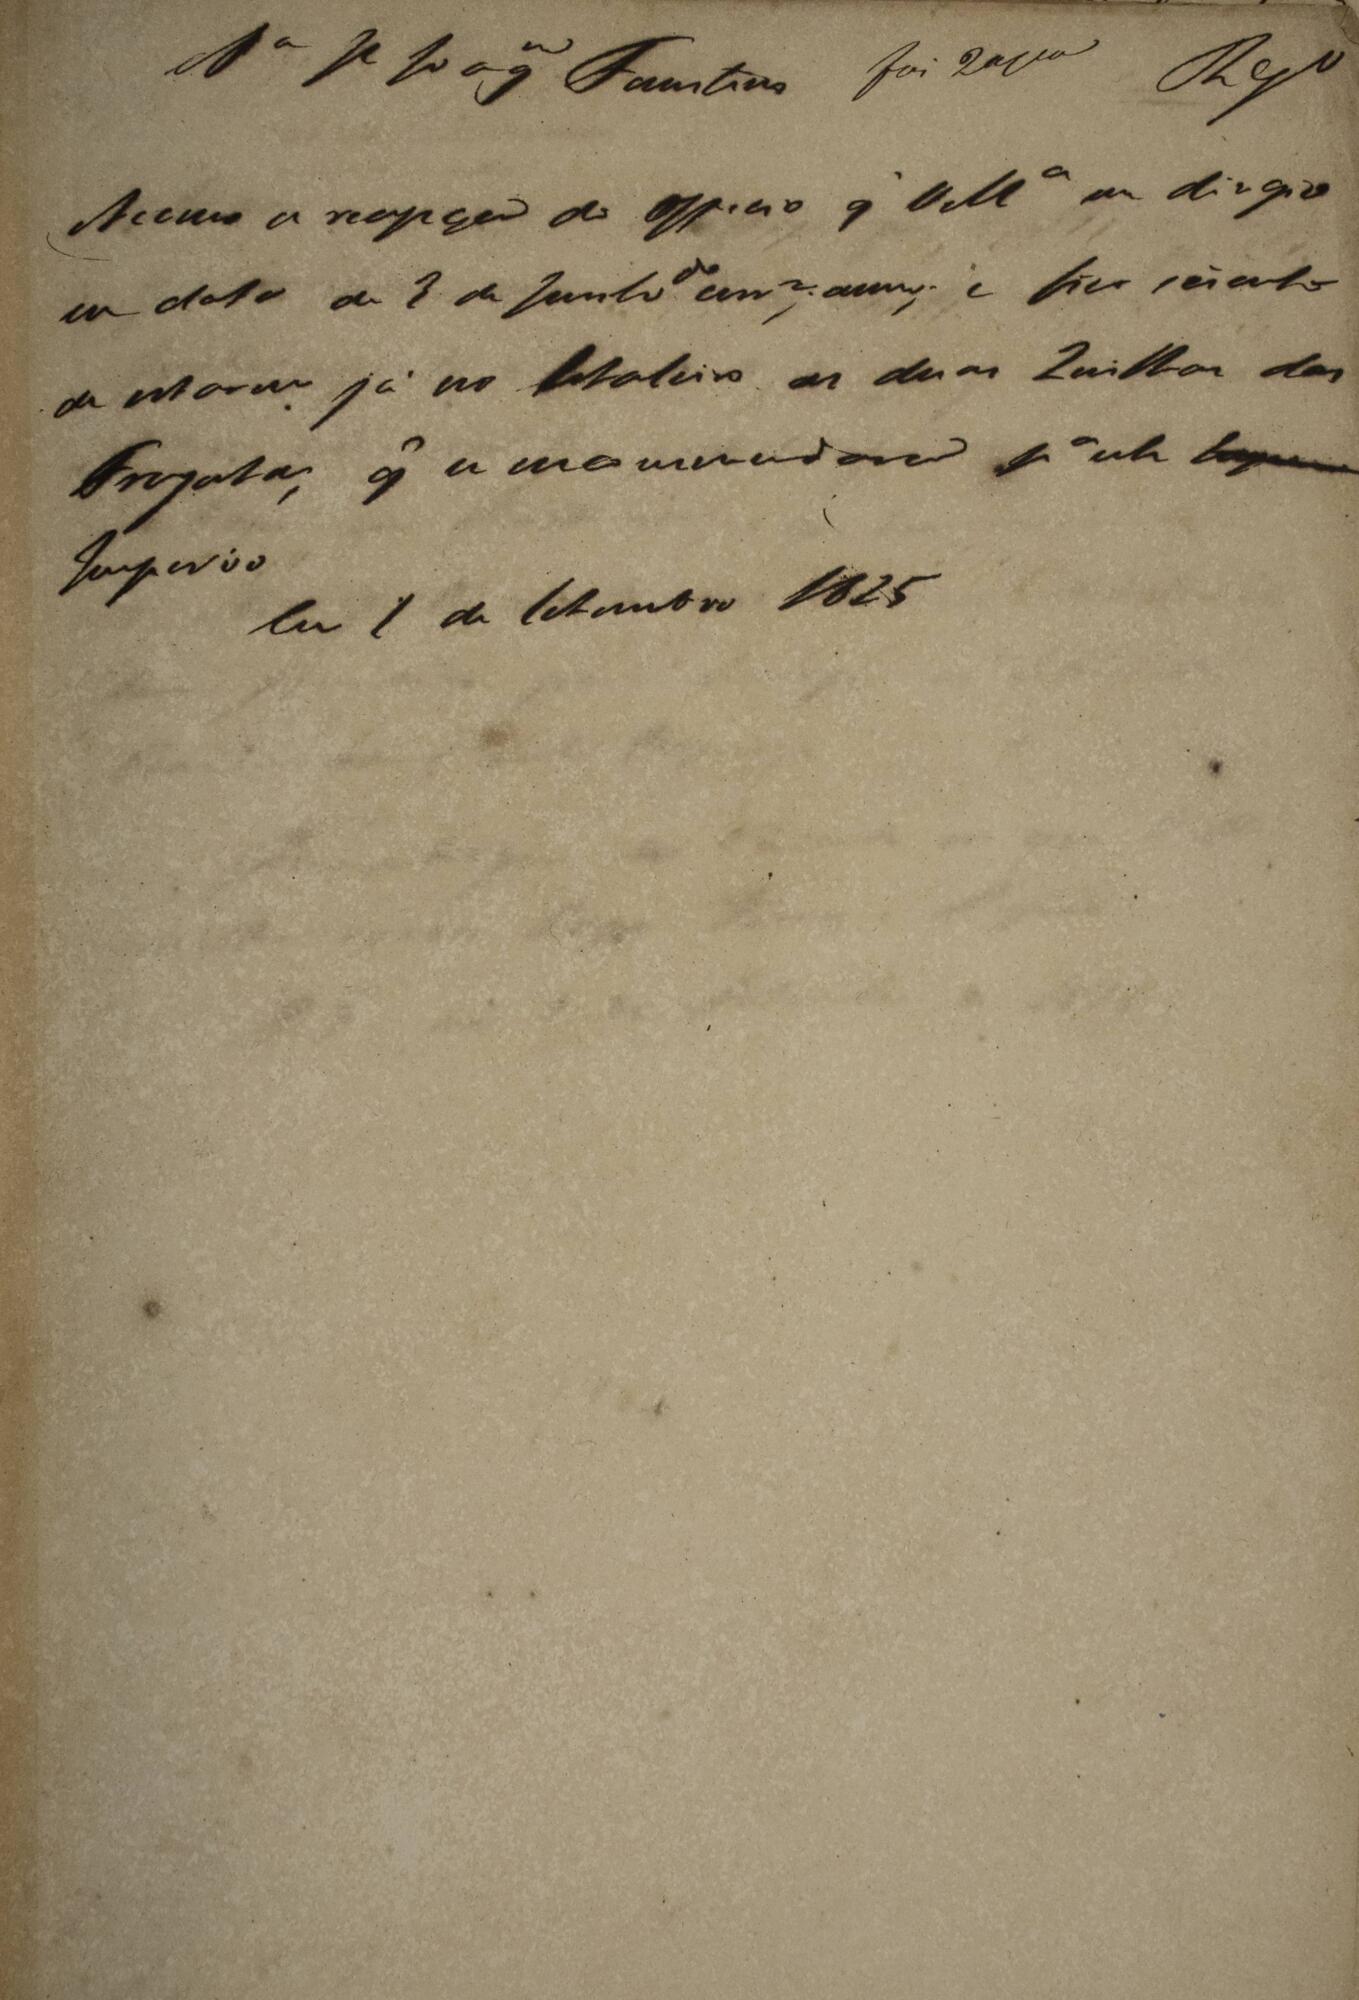 P.ª Joaq.m Faustino foi Reg.o
Accuso a recepção do officio q̃ V M.ª me dirigio
em data de 3 de Junho do corr.e anno, e fico sciente
de estarem já no Estaleiro as duas Quilhas das
Fragatas, q̃ se encommendarão p.ª este
Imperio
Em 1 de Setembro 1825